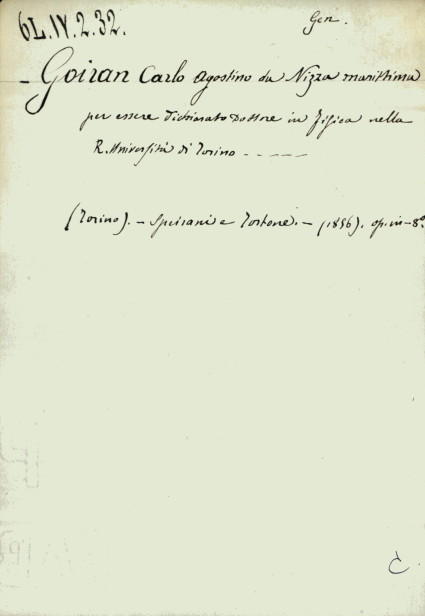 6L.IV.2.32.
Gen.
- Goiran Carlo Agostino da Nizza marittima
per essere dichiarato Dottore in Fisica nella
R. Università di Torino - - - -
(Torino). - Speirani e Tortone. - (1856). op. in-8º
C